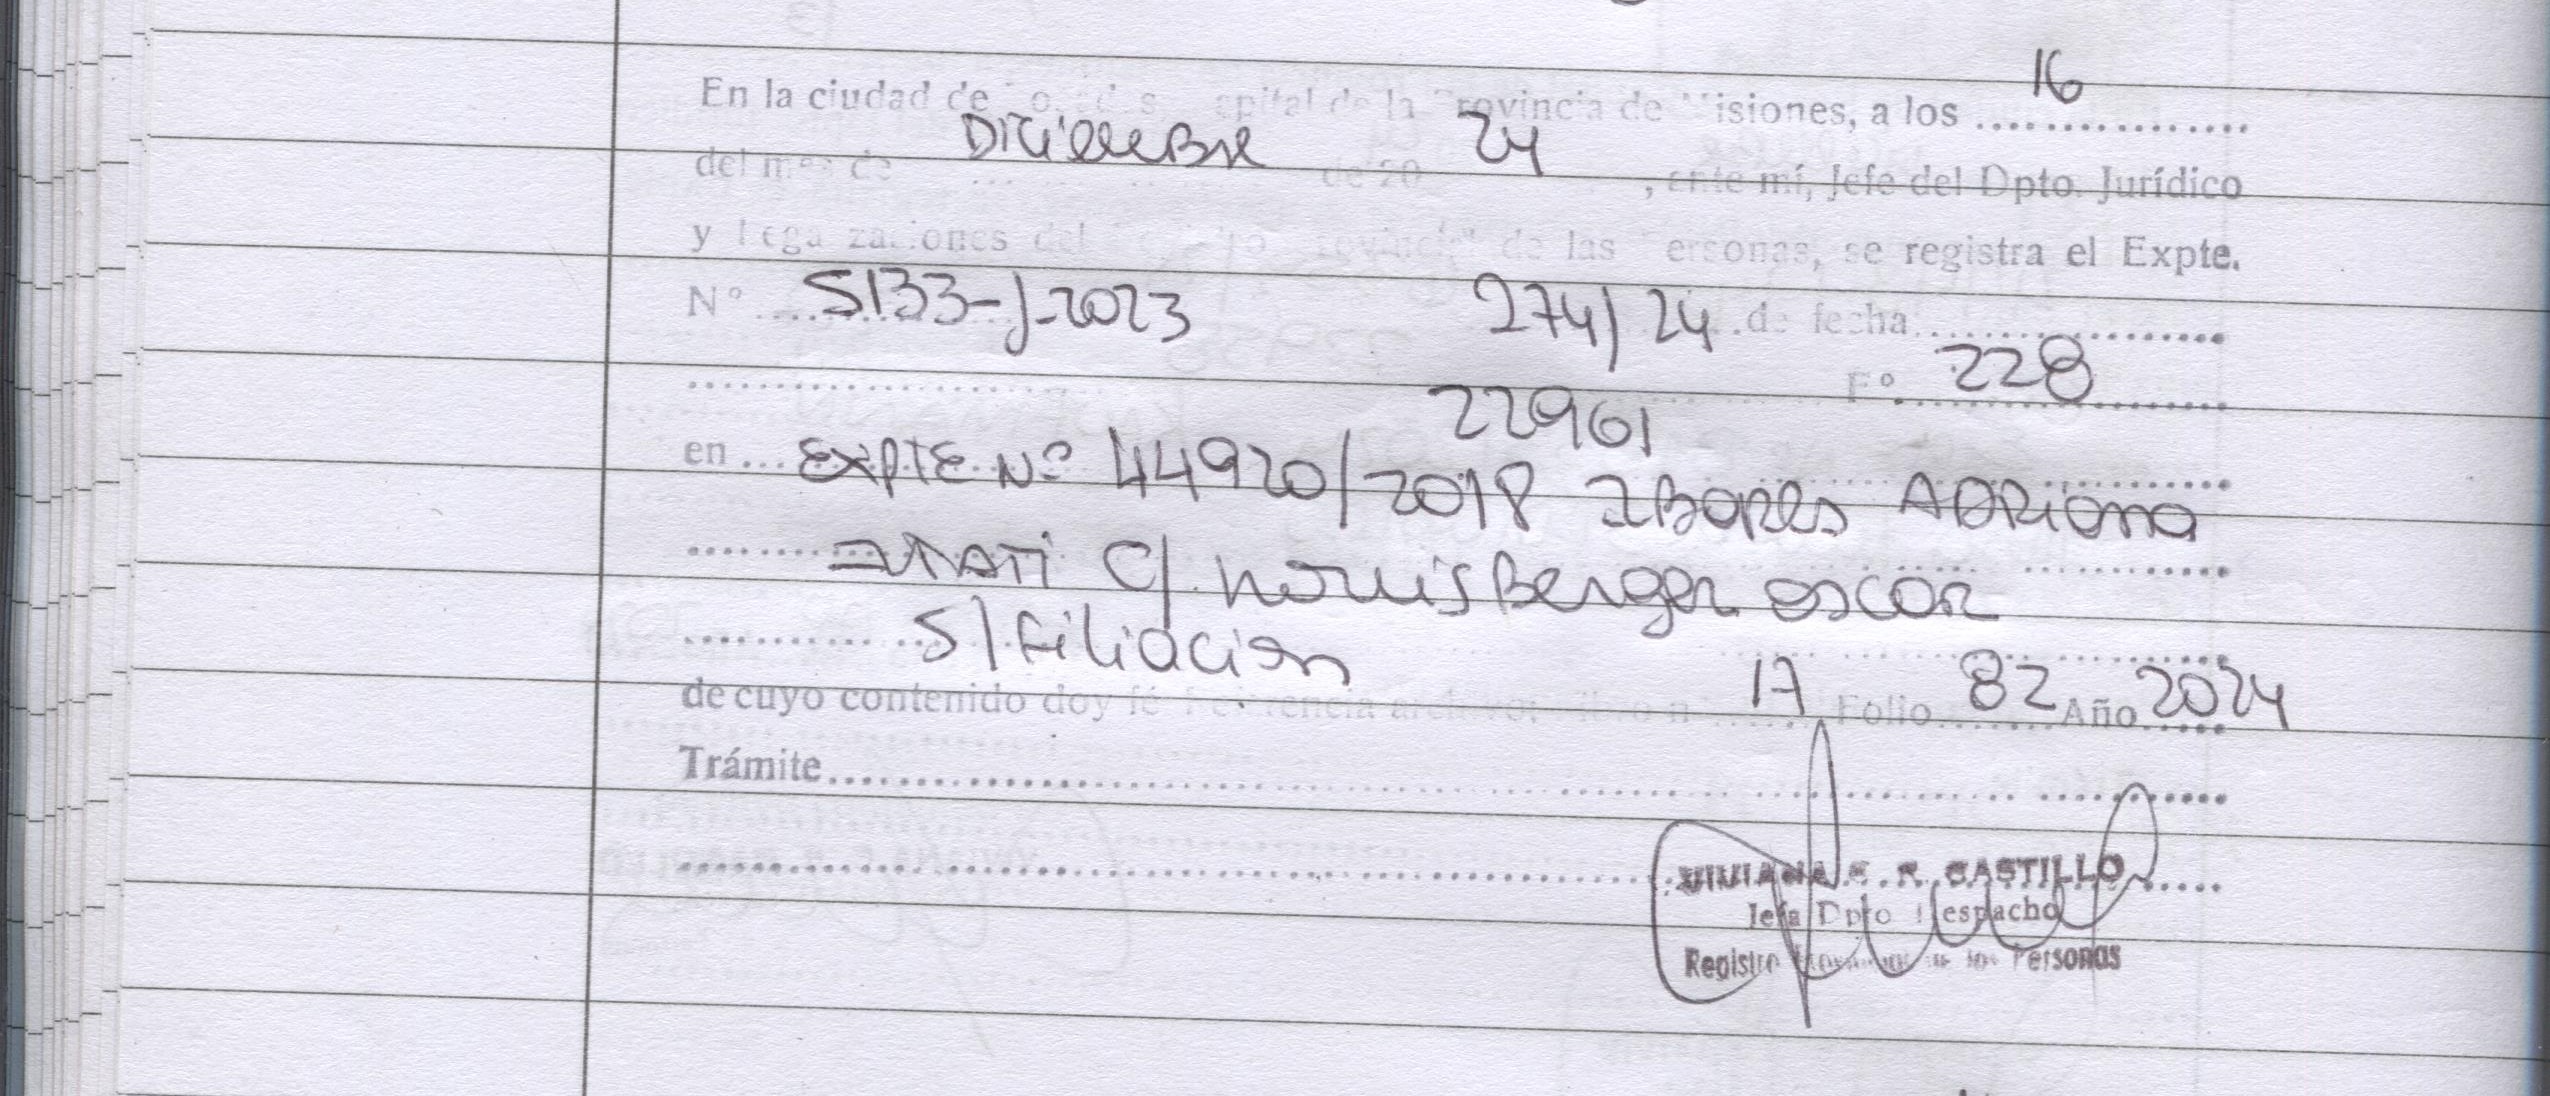 En la ciudad de Posadas, capital de la Provincia de Misiones, a los 16
del mes de Diciembre de 20 24, ante mí, Jefe del Dpto. Jurídico
y Legalizaciones del Registro Provincial de las Personas, se registra el Expte.
Nº 5133-J-2023 274/24 de fecha
22961 Fº 228
en EXPTE Nº 44920/2018 IBARRES ADRIANA
ITATI C/
S/ Filiación
de cuyo contenido doy fé Referencia archivo: libro nº 17 Folio 82 Año 2024
Trámite
VIVIANA E. R. CASTILLO
Jefa Dpto Despacho
Registro Provincial de las Personas